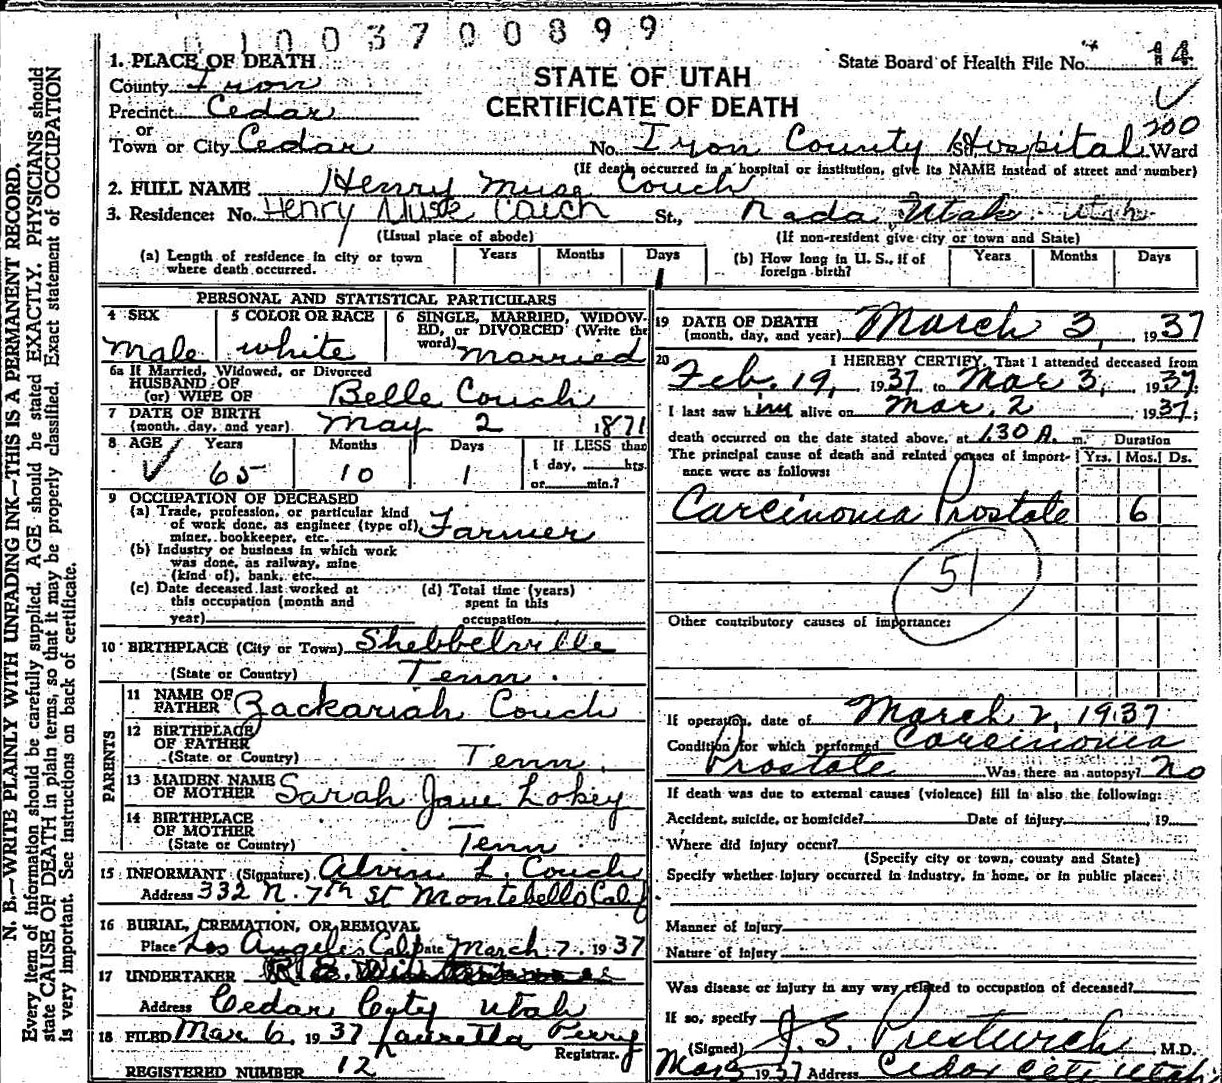 01003700899
1. PLACE OF DEATH
County Iron
Precinct Cedar
or
Town or City Cedar
STATE OF UTAH
CERTIFICATE OF DEATH
State Board of Health File No. 14
No. Iron County Hospital St. 200 Ward
(If death occurred in a hospital or institution, give its NAME instead of street and number)
2. FULL NAME Henry Muse Couch
3. Residence: No. Henry Muse Couch St., Nada Utah Utah
(Usual place of abode) (If non-resident give city or town and State)
(a) Length of residence in city or town where death occurred. Years Months Days 1
(b) How long in U. S., if of foreign birth? Years Months Days
PERSONAL AND STATISTICAL PARTICULARS
4 SEX Male
5 COLOR OR RACE white
6 SINGLE, MARRIED, WIDOWED, or DIVORCED (Write the word) married
6a If Married, Widowed, or Divorced
HUSBAND OF
(or) WIFE OF Belle Couch
7 DATE OF BIRTH
(month, day, and year) May 2 1871
8 AGE Years Months Days If LESS than
65 10 1 1 day, hrs.
or min.?
9 OCCUPATION OF DECEASED
(a) Trade, profession, or particular kind
of work done, as engineer (type of),
miner, bookkeeper, etc. Farmer
(b) Industry or business in which work
was done, as railway, mine
(kind of), bank, etc.
(c) Date deceased last worked at
this occupation (month and
year)
(d) Total time (years)
spent in this
occupation
10 BIRTHPLACE (City or Town) Shebbelville
(State or Country) Tenn.
PARENTS
11 NAME OF
FATHER Zackariah Couch
12 BIRTHPLACE
OF FATHER
(State or Country) Tenn.
13 MAIDEN NAME
OF MOTHER Sarah Jane Lokey
14 BIRTHPLACE
OF MOTHER
(State or Country) Tenn.
15 INFORMANT (Signature) Alvin L. Couch
Address 332 N. 7th St Montebello Calif
16 BURIAL, CREMATION, OR REMOVAL
Place Los Angeles Cal Date March 7 1937
17 UNDERTAKER
Address Cedar City Utah
18 FILED Mar 6, 1937 Lauretta Perry
Registrar.
REGISTERED NUMBER 12
19 DATE OF DEATH
(month, day, and year) March 3, 1937
20 I HEREBY CERTIFY, That I attended deceased from
Feb. 19, 1937 to Mar 3, 1937.
I last saw him alive on Mar. 2, 1937;
death occurred on the date stated above, at 1.30 A. m. Duration
The principal cause of death and related causes of importance were as follows: Yrs. Mos. Ds.
Carcinonia Prostate 6
51
Other contributory causes of importance:
If operation, date of March 2, 1937
Condition for which performed Carcinonia
Prostate Was there an autopsy? no
If death was due to external causes (violence) fill in also the following:
Accident, suicide, or homicide? Date of injury 19
Where did injury occur?
(Specify city or town, county and State)
Specify whether injury occurred in industry, in home, or in public place:
Manner of injury
Nature of injury
Was disease or injury in any way related to occupation of deceased?
If so, specify
(Signed) J. S. Prestwich M.D.
Mar 5 1937 Address Cedar City Utah.
N. B.—WRITE PLAINLY WITH UNFADING INK—THIS IS A PERMANENT RECORD.
Every item of information should be carefully supplied. AGE should be stated EXACTLY. PHYSICIANS should
state CAUSE OF DEATH in plain terms, so that it may be properly classified. Exact statement of OCCUPATION
is very important. See instructions on back of certificate.